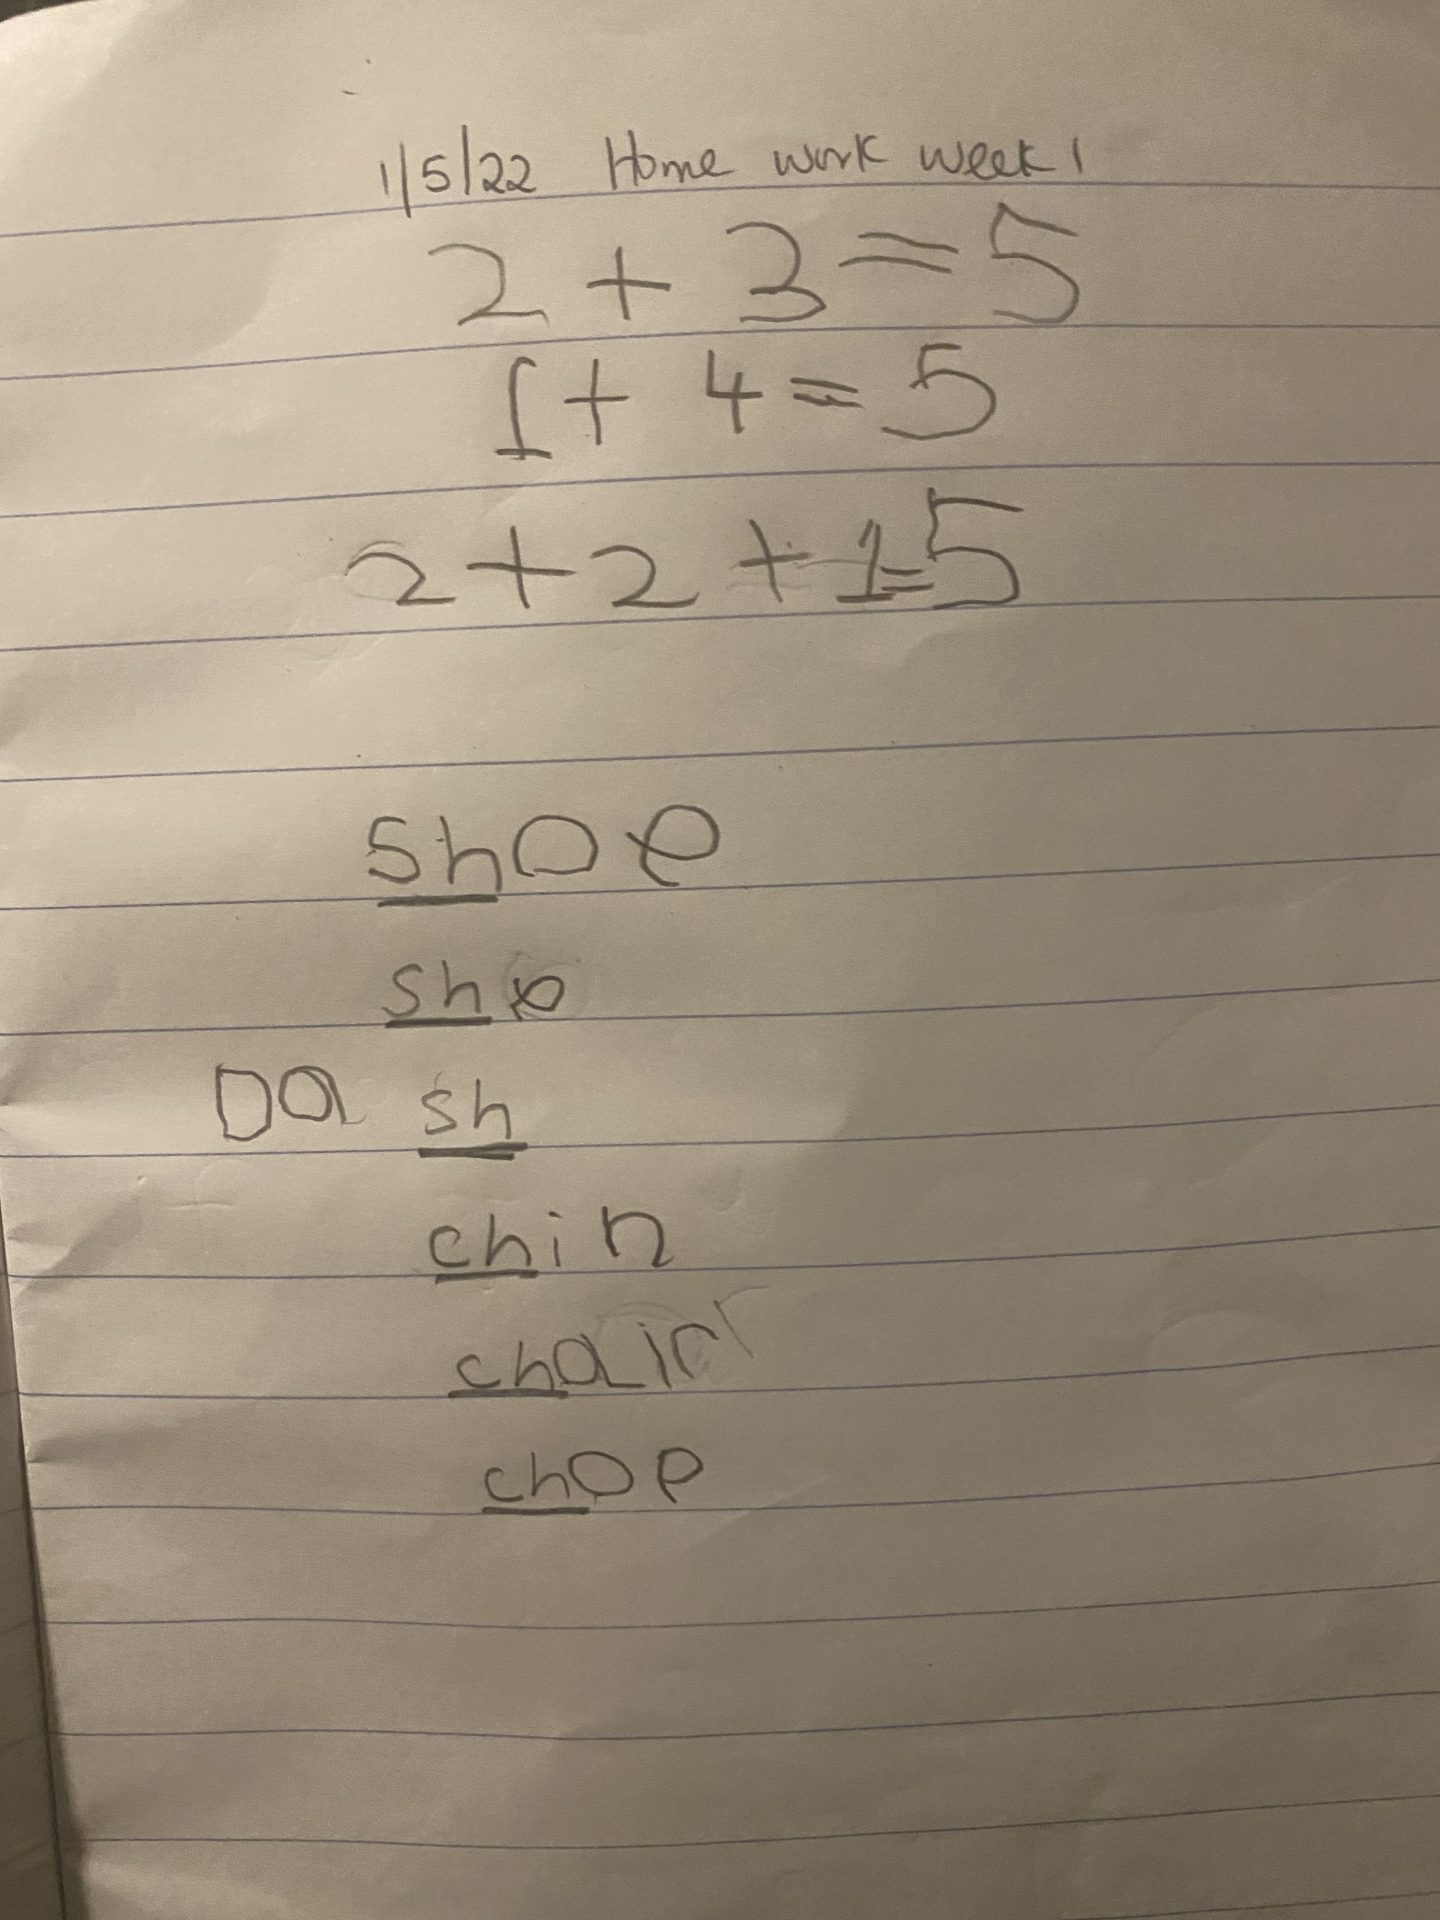 1/5/22 Home work week 1
2 + 3 = 5
1 + 4 = 5
2 + 2 + 1 = 5
shoe
she
Da sh
chin
chair
chop